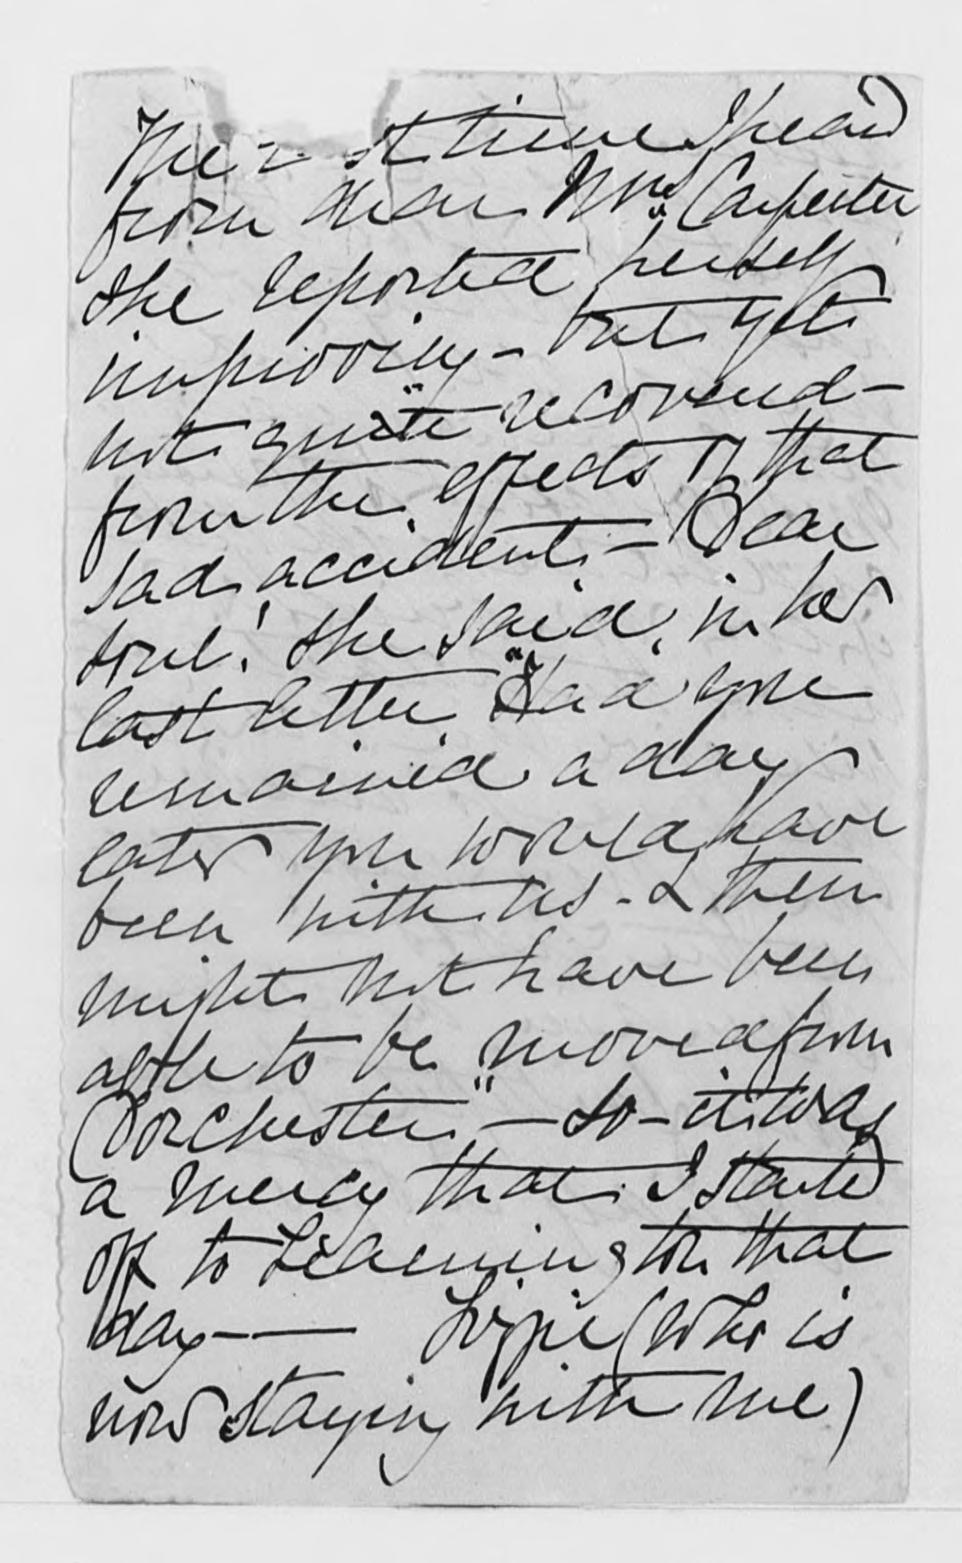 The last time I heard
from dear Mrs Carpenter
she reported herself
improving - but yet
not "quite" recovered -
from the effects of that
sad accident - Dear
soul! she said, in her
last letter "Had you
remained a day
later you would have
been with us - & then
might not have been
able to be moved from
Dorchester" - So - it was
a mercy that I started
off to Leamington that
day - — Lizzie (who is
now staying with me)